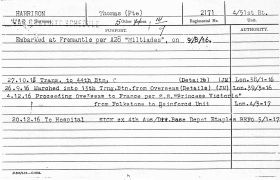 HARRISON Thomas (Pte) 2171 4/51st Bt.
Other
Regimental No.
PURPORT
Embarked at Fremantle per A28 "Miltiades", on 9/8/16.
27.10.16 Trans. to 44th Btn. (Details) (JM) Lon.38/1-16
26.9.16 Marched into 13th Trng.Btn.from Overseas (Details) (JM) Lon.39/3-16
4.12.16 Proceeding Overseas to France per S.S."Princess Victoria"
from Folkstone to Reinforced Unit Lon.4/3-17
20.12.16 To Hospital SICK ex 4th Aus/Div.Base Depot Etaples 5/1-17